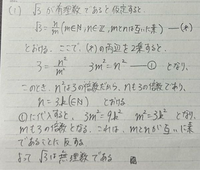 (1) √3 が有理数であると仮定すると
√3 = n/m (m∈N, n∈Z, mとnは互いに素) —(*)
とおける. ここで, (*)の両辺を2乗すると,
3 = n²/m² 3m² = n² —① となり,
このとき, n²は3の倍数だから, nも3の倍数であり,
n = 3k(∈N) とおける
①に代入すると, 3m² = 9k² m² = 3k² となり,
mも3の倍数となる. これは, mとnが互いに素
であることに反する
よって √3は無理数である